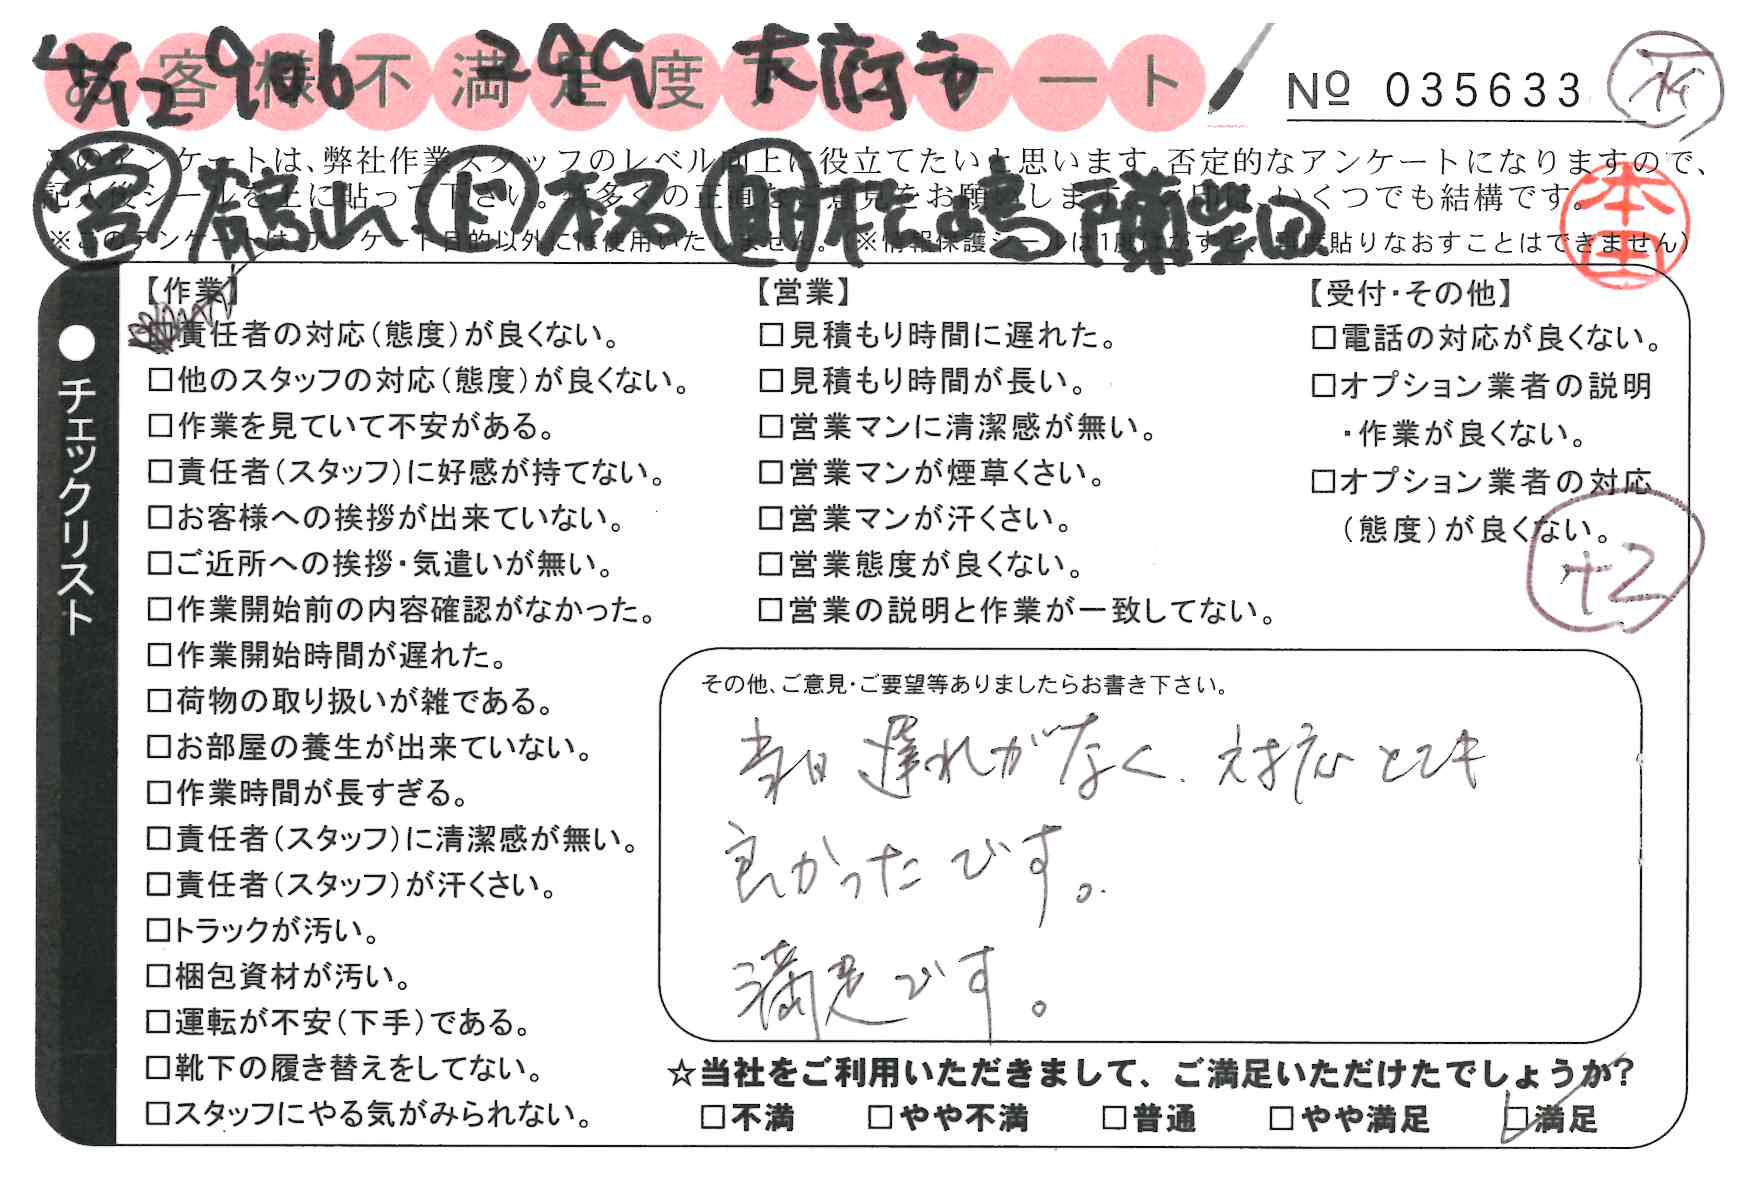 お客様不満足度アンケート
4/12 906 大府市
№ 035633
このアンケートは、弊社作業スタッフのレベル向上に役立てたいと思います。否定的なアンケートになりますので、
記入後シールを上に貼って下さい。数多くの正直なご意見をお願いします。いくつでも結構です。
※このアンケートは、アンケート目的以外には使用いたしません。(※情報保護シールは1度はがすと、再度貼りなおすことはできません)
営 鶴山 下
本田
●チェックリスト
【作業】
□責任者の対応(態度)が良くない。
□他のスタッフの対応(態度)が良くない。
□作業を見ていて不安がある。
□責任者(スタッフ)に好感が持てない。
□お客様への挨拶が出来ていない。
□ご近所への挨拶・気遣いが無い。
□作業開始前の内容確認がなかった。
□作業開始時間が遅れた。
□荷物の取り扱いが雑である。
□お部屋の養生が出来ていない。
□作業時間が長すぎる。
□責任者(スタッフ)に清潔感が無い。
□責任者(スタッフ)が汗くさい。
□トラックが汚い。
□梱包資材が汚い。
□運転が不安(下手)である。
□靴下の履き替えをしてない。
□スタッフにやる気がみられない。
【営業】
□見積もり時間に遅れた。
□見積もり時間が長い。
□営業マンに清潔感が無い。
□営業マンが煙草くさい。
□営業マンが汗くさい。
□営業態度が良くない。
□営業の説明と作業が一致してない。
【受付・その他】
□電話の対応が良くない。
□オプション業者の説明
・作業が良くない。
□オプション業者の対応
(態度)が良くない。
+2
その他、ご意見・ご要望等ありましたらお書き下さい。
当日遅れがなく、対応とても
良かったです。
満足です。
☆当社をご利用いただきまして、ご満足いただけたでしょうか?
□不満 □やや不満 □普通 □やや満足 □満足